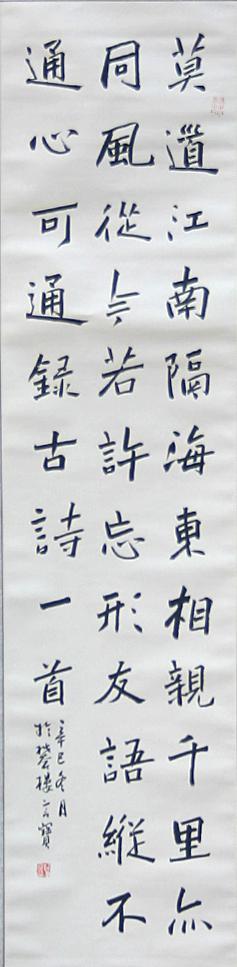 莫道江南隔海東相親千里亦
同風從今若許忘形友語縱不
通心可通録古詩一首
辛巳冬月
於